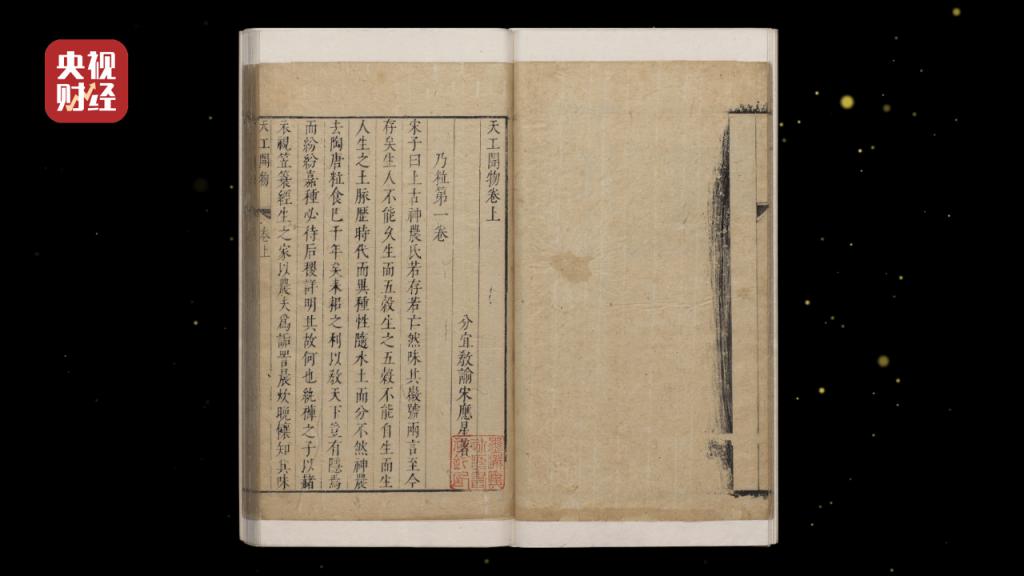 央视
财经
天工開物卷上
分宜敎諭宋應星著
乃粒第一卷
宋子曰上古神農氏若存若亡然味其徽號兩言至今
存矣生人不能久生而五穀生之五穀不能自生而生
人生之土脉歷時代而異種性隨水土而分不然神農
去陶唐粒食已千年矣耒耜之利以敎天下豈有隱焉
而紛紛嘉種必待后稷詳明其故何也紈褲之子以赭
衣視笠簑經生之家以農夫爲詬詈晨炊晚饟知其味
天工開物 卷上